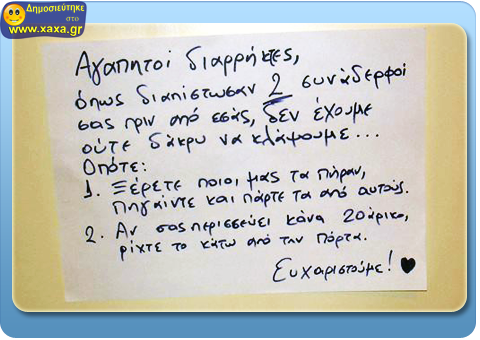 Δημοσιεύτηκε
στο
www.xaxa.gr
Αγαπητοί διαρρήκτες,
όπως διαπίστωσαν 2 συνάδερφοί
σας πριν από εσάς, δεν έχουμε
ούτε δάκρυ να κλάψουμε...
Οπότε:
1. Ξέρετε ποιοι μας τα πήραν,
πηγαίντε και πάρτε τα από αυτούς.
2. Αν σας περισσεύει κάνα 20άρικο,
ρίχτε το κάτω από την πόρτα.
Ευχαριστούμε! ♥